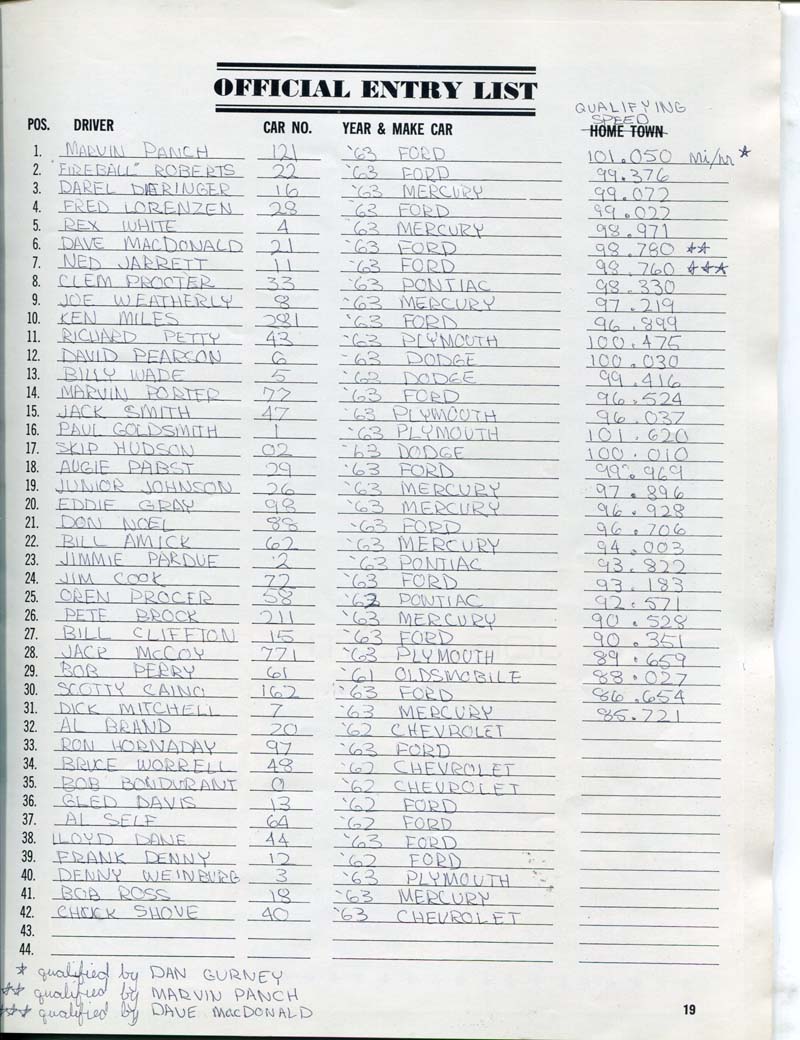 OFFICIAL ENTRY LIST
QUALIFYING
SPEED
POS. DRIVER CAR NO. YEAR & MAKE CAR HOME TOWN
1. MARVIN PANCH 121 '63 FORD 101.050 mi/hr *
2. "FIREBALL" ROBERTS 22 '63 FORD 99.376
3. DAREL DIERINGER 16 '63 MERCURY 99.072
4. FRED LORENZEN 28 '63 FORD 99.022
5. REX WHITE 4 '63 MERCURY 98.971
6. DAVE MACDONALD 21 '63 FORD 98.780 **
7. NED JARRETT 11 '63 FORD 98.760 ***
8. CLEM PROCTER 33 '63 PONTIAC 98.330
9. JOE WEATHERLY 8 '63 MERCURY 97.219
10. KEN MILES 281 '63 FORD 96.899
11. RICHARD PETTY 43 '63 PLYMOUTH 100.475
12. DAVID PEARSON 6 '63 DODGE 100.030
13. BILLY WADE 5 '62 DODGE 99.416
14. MARVIN PORTER 77 '63 FORD 96.524
15. JACK SMITH 47 '63 PLYMOUTH 96.037
16. PAUL GOLDSMITH 1 '63 PLYMOUTH 101.620
17. SKIP HUDSON 02 '63 DODGE 100.010
18. AUGIE PABST 29 '63 FORD 99.969
19. JUNIOR JOHNSON 26 '63 MERCURY 97.896
20. EDDIE GRAY 98 '63 MERCURY 96.928
21. DON NOEL 88 '63 FORD 96.706
22. BILL AMICK 62 '63 MERCURY 94.003
23. JIMMIE PARDUE 2 '63 PONTIAC 93.822
24. JIM COOK 72 '63 FORD 93.183
25. OREN PROCER 58 '62 PONTIAC 92.571
26. PETE BROCK 211 '63 MERCURY 90.528
27. BILL CLIFFTON 15 '63 FORD 90.351
28. JACK McCOY 771 '63 PLYMOUTH 89.659
29. BOB PERRY 61 '61 OLDSMOBILE 88.027
30. SCOTTY CAINO 162 '63 FORD 86.654
31. DICK MITCHELL 7 '63 MERCURY 85.721
32. AL BRAND 20 '62 CHEVROLET
33. RON HORNADAY 97 '63 FORD
34. BRUCE WORRELL 48 '62 CHEVROLET
35. BOB BONDURANT 0 '62 CHEVROLET
36. GLED DAVIS 13 '62 FORD
37. AL SELF 64 '62 FORD
38. LLOYD DANE 44 '63 FORD
39. FRANK DENNY 12 '62 FORD
40. DENNY WEINBURG 3 '63 PLYMOUTH
41. BOB ROSS 18 '63 MERCURY
42. CHUCK SHOVE 40 '63 CHEVROLET
43.
44.
* qualified by DAN GURNEY
** qualified by MARVIN PANCH
*** qualified by DAVE MACDONALD
19